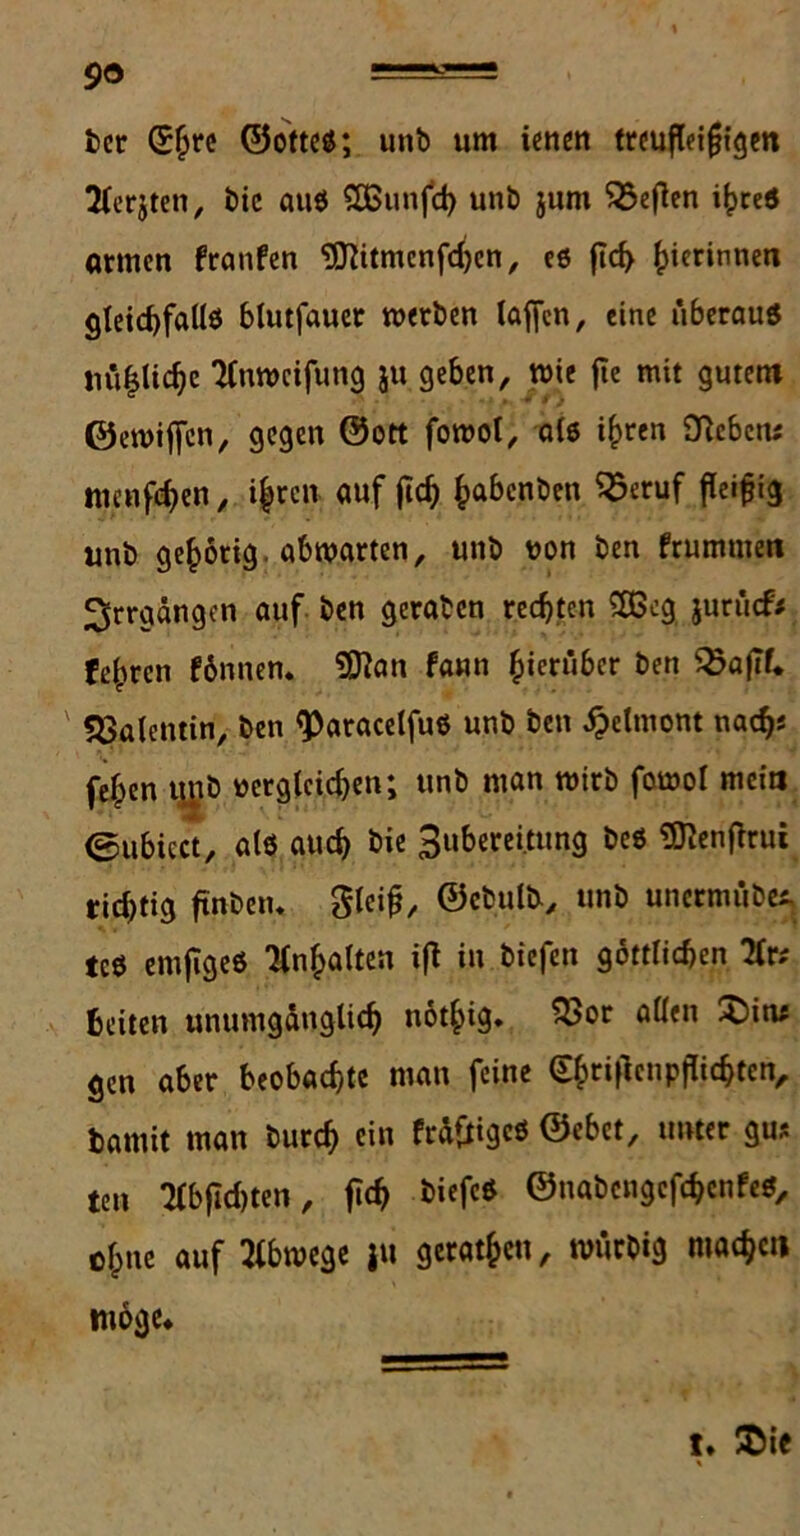 90
der Ehre Gottes; und um ienen treufleißigen
Aerzten, die aus Wunsch und zum Besten ihres
armen kranken Mitmenschen, es sich hierinnen
gleichfalls blutsauer werden lassen, eine überaus
nützliche Anweisung zu geben, wie sie mit gutem
Gewissen, gegen Gott sowol, als ihren Neben-
menschen, ihren auf sich habenden Beruf fleißig
und gehörig abwarten, und von den krummen
Irrgängen auf den geraden rechten Weg zurück-
kehren können. Man kann hierüber den Basil.
Valentin, den Paracelsus und den Helmont nach-
sehen und vergleichen; und man wird sowol mein
Subiect, als auch die Zubereitung des Menstrui
richtig finden. Fleiß, Geduld, und unermüde-
tes emsiges Anhalten ist in diesen göttlichen Ar-
beiten unumgänglich nöthig. Vor allen Din-
gen aber beobachte man seine Christenpflichten,
damit man durch ein kräftiges Gebet, unter gu-
ten Absichten, sich dieses Gnadengeschenkes,
ohne auf Abwege zu gerathen, würdig machen
möge.
1. Die